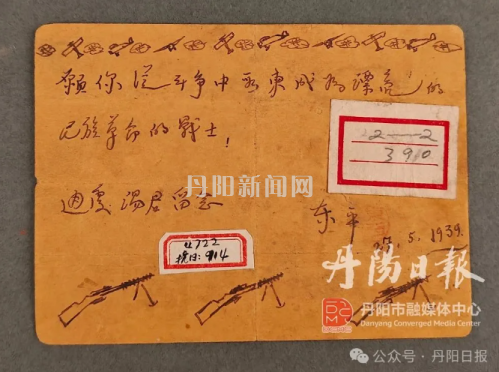 願你從斗争中成为漂亮的
民族革命的戰士!
留念
东平
27.5.1939.
2—2
3910
4722
抗日:914
丹阳新闻网
丹陽日報
丹阳市融媒体中心
Danyang Converged Media Center
公众号·丹阳日报